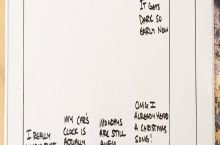 IT GETS
DARK SO
EARLY NOW
I REALLY
MY CAR'S
CLOCK IS
ACTUALLY
MONDAYS
ARE STILL
OMG I
ALREADY HEARD
A CHRISTMAS
SONG!